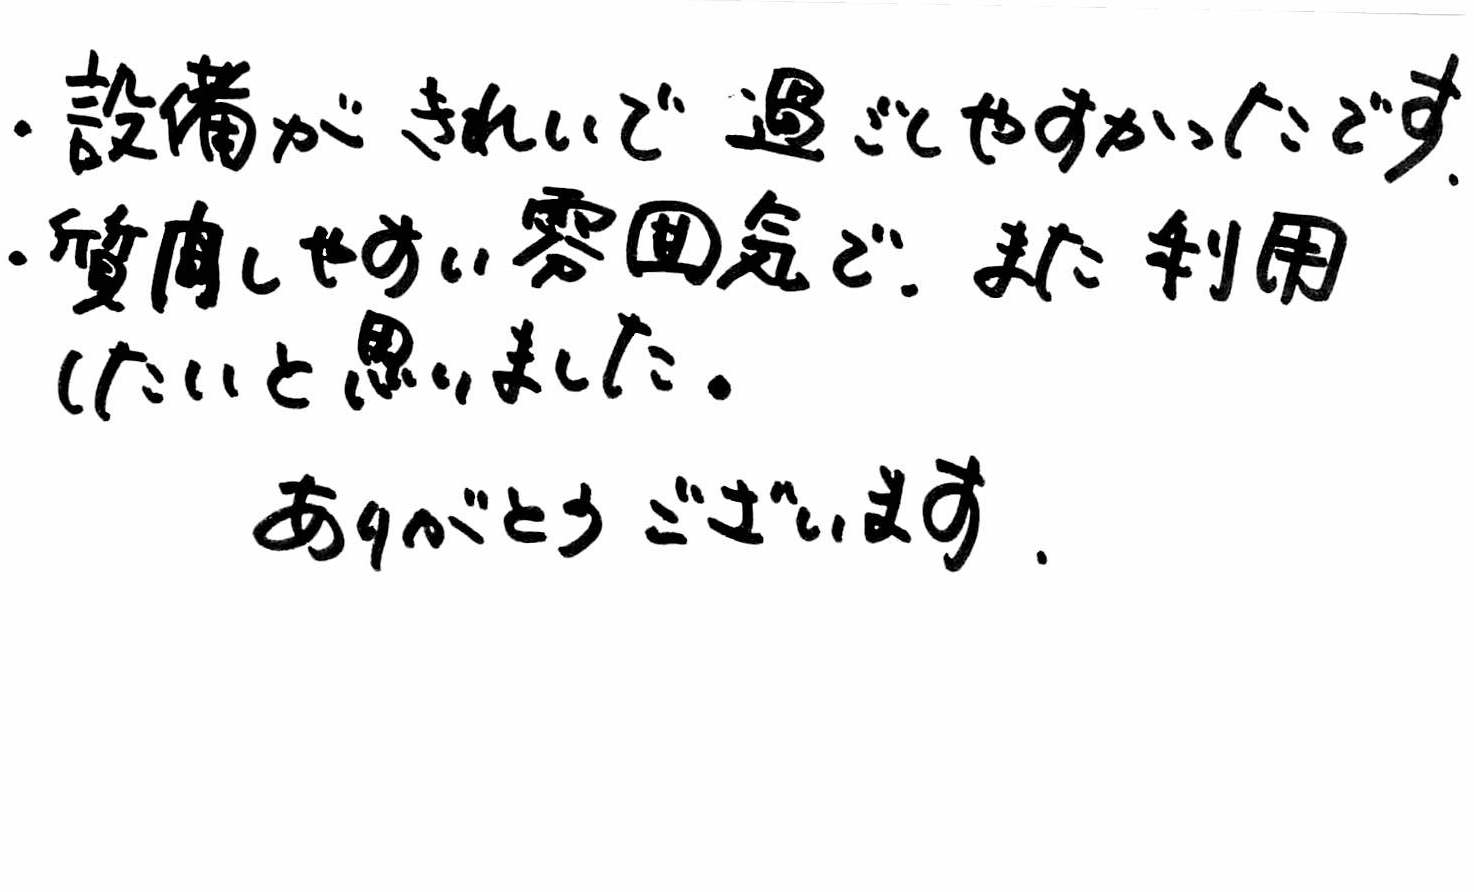 ・設備がきれいで過ごしやすかったです.
・質問しやすい雰囲気で、また利用
したいと思いました。
ありがとうございます.